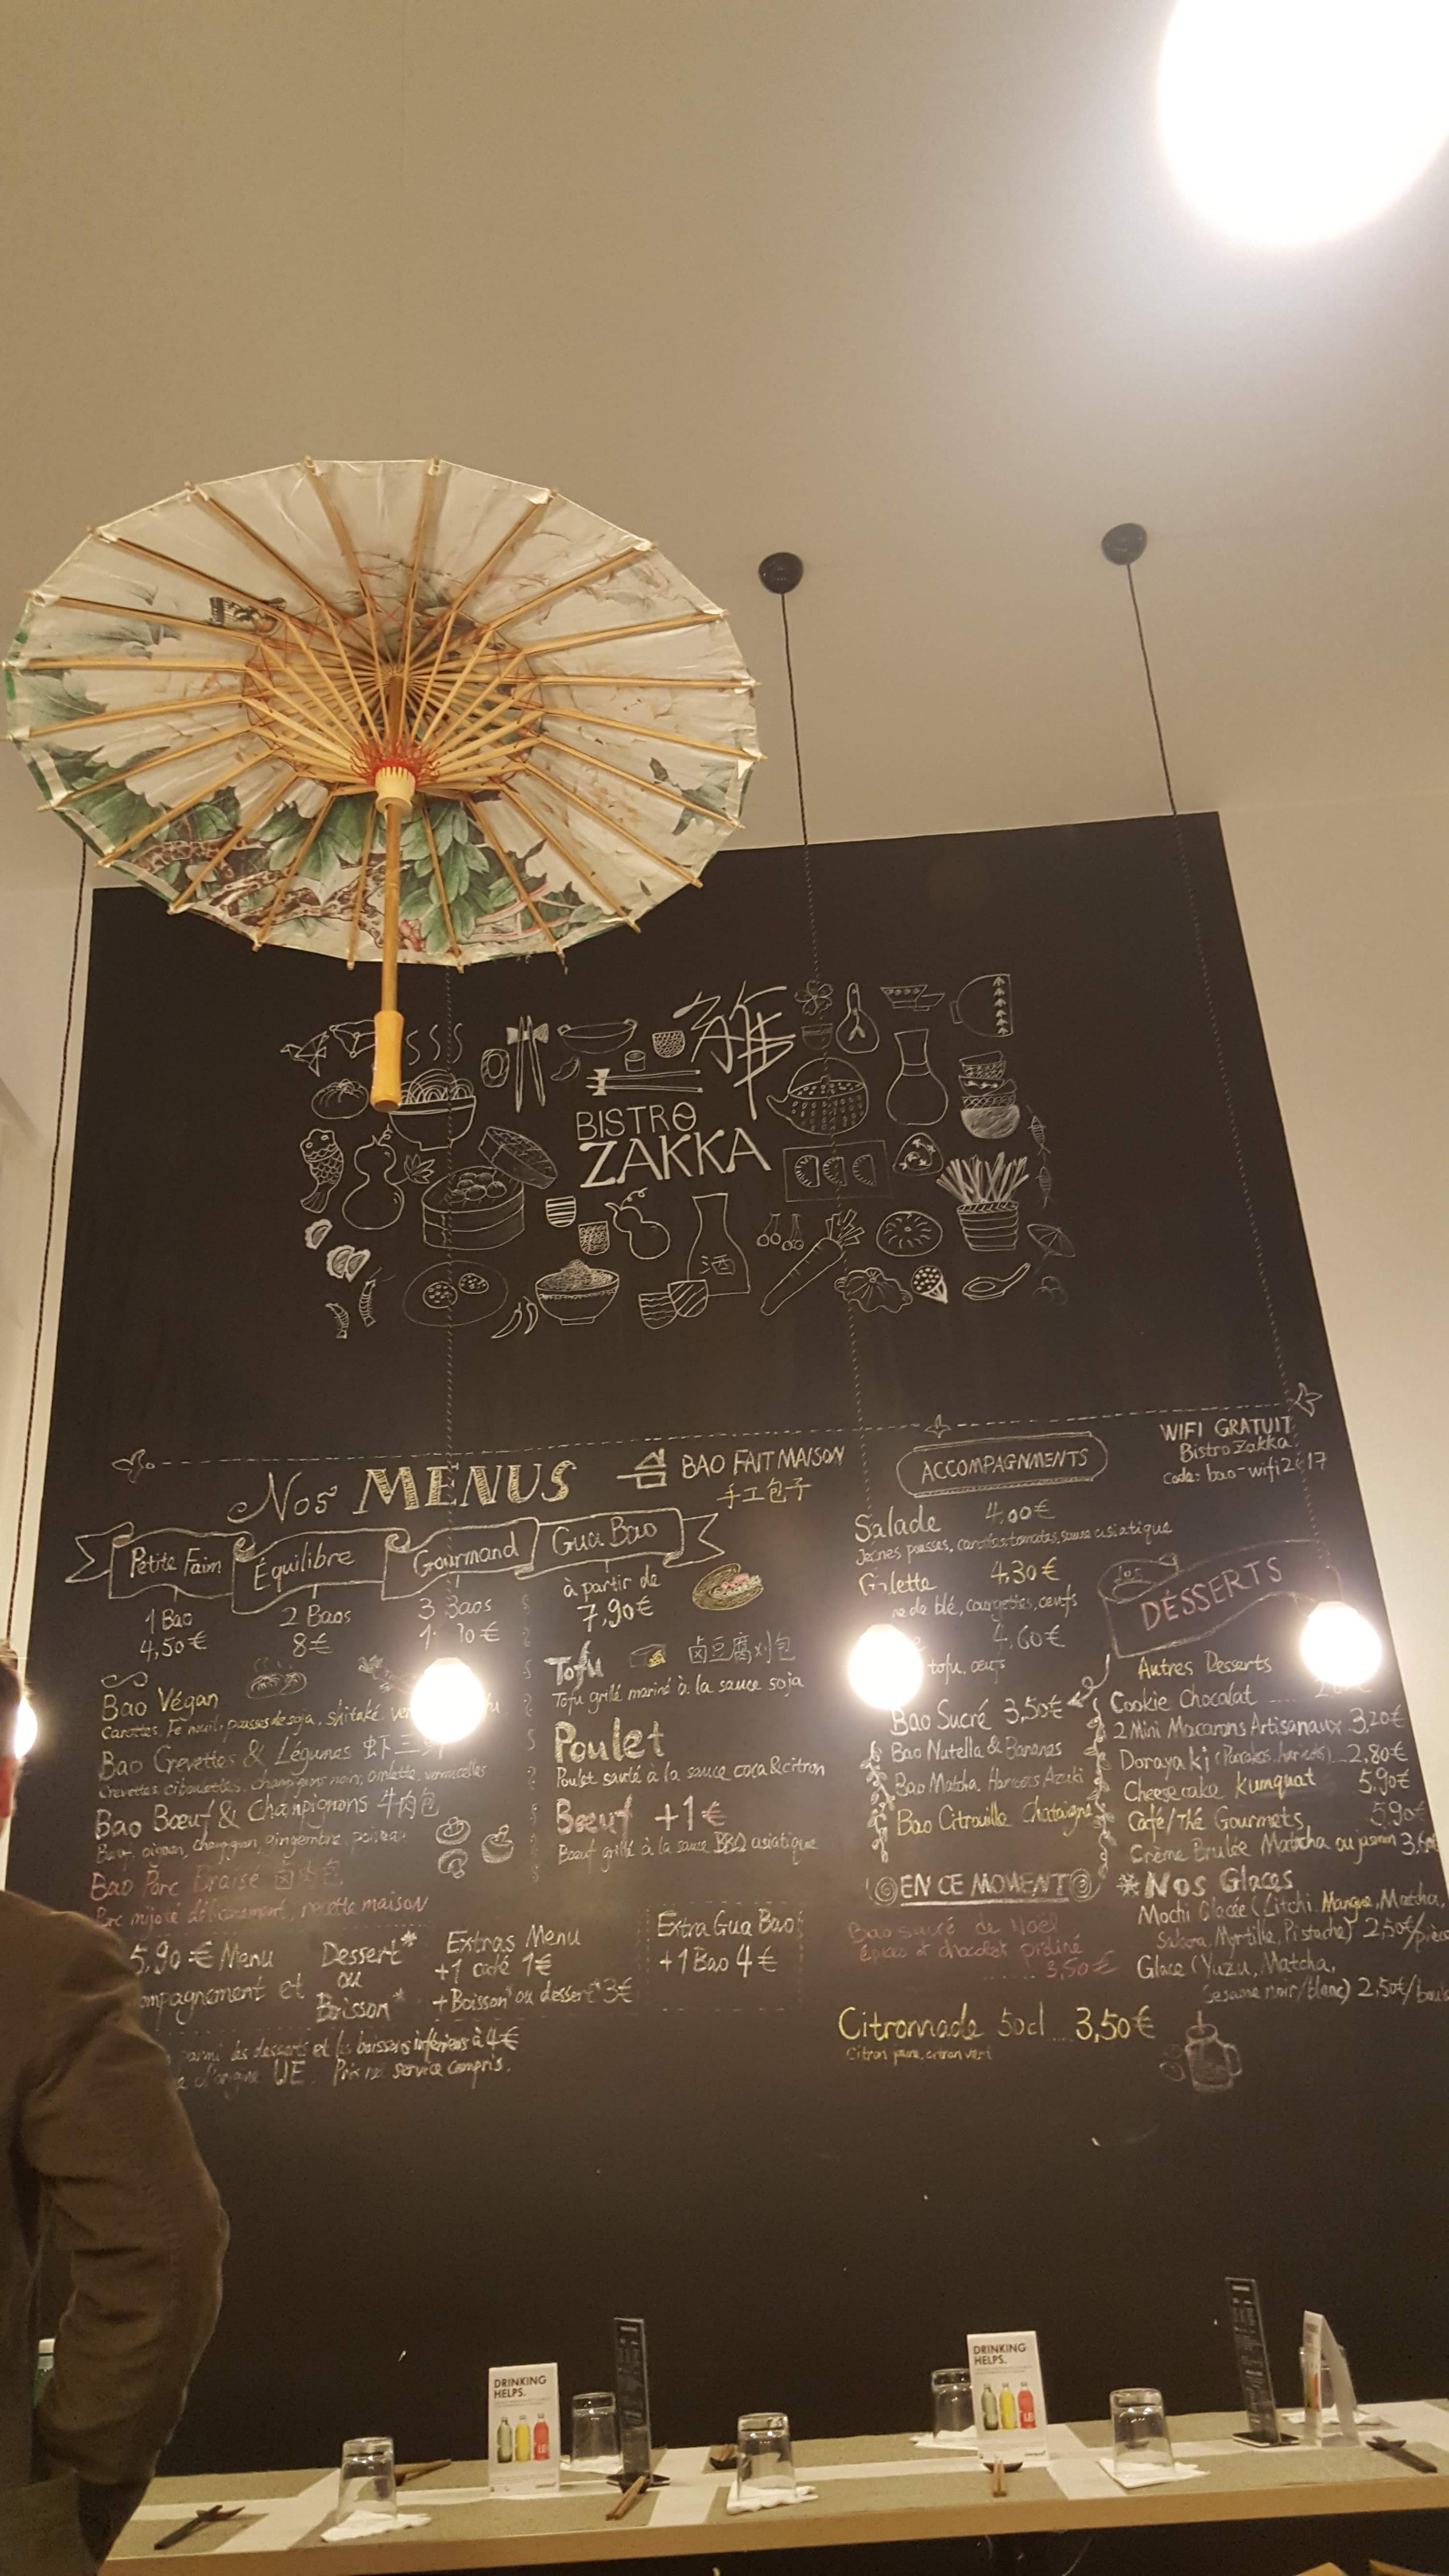 雑
BISTRO
ZAKKA
酒
NOS MENUS
BAO FAIT MAISON
手工包子
Petite Faim
Équilibre
Gourmand
Gua Bao
1 Bao
4,50€
2 Baos
8€
3 Baos
à partir de
7,90€
Bao Végan
Carottes, shitaké,
Bao Crevettes & Légumes
Crevettes, ciboulettes, champignons noirs, omelette, vermicelles
Bao Bœuf & Champignons 牛肉包
Bœuf, oignon, champignon, gingembre, poireau
Bao Porc Braisé
Porc mijoté délicatement, recette maison
Tofu 卤豆腐刈包
Tofu grillé mariné à la sauce soja
Poulet
Poulet sauté à la sauce coca & citron
Bœuf +1€
Bœuf grillé à la sauce BBQ asiatique
5,90€ Menu
et
Dessert*
ou
Boisson*
Extras Menu
+1 café 1€
+Boisson* ou dessert* 3€
Extra Gua Bao
+1 Bao 4€
parmi les desserts et les boissons inférieurs à 4€
d'origine UE. Prix net service compris.
ACCOMPAGNMENTS
Salade 4.00€
Jeunes pousses, carottes, tomates, sauce asiatique
4,30€
de blé, courgettes, œufs
4,60€
tofu, œufs
Bao Sucré 3,50€
Bao Nutella & Bananes
Bao Matcha Haricots Azuki
Bao Citrouille Chataigne
EN CE MOMENT
Bao sucré de Noël
Épices et chocolat praliné
3,50€
Citronnade 50cl 3,50€
Citron jaune, citron vert
WIFI GRATUIT
Bistro Zakka
code: bao-wifi2017
NOS
DESSERTS
Autres Desserts
Cookie Chocolat
2 Mini Macarons Artisanaux 3,20€
Dorayaki 2,80€
Cheesecake Kumquat 5.90€
Café/Thé Gourmets 5,90€
Crème Brulée Matcha ou jasmin
*Nos Glaces
Mochi Glacée (Litchi, Mangue, Matcha,
Sakura, Myrtille, Pistache) 2,50€/pièce
Glace (Yuzu, Matcha,
Sesame noir/blanc) 2,50€/boule
DRINKING
HELPS.
DRINKING
HELPS.